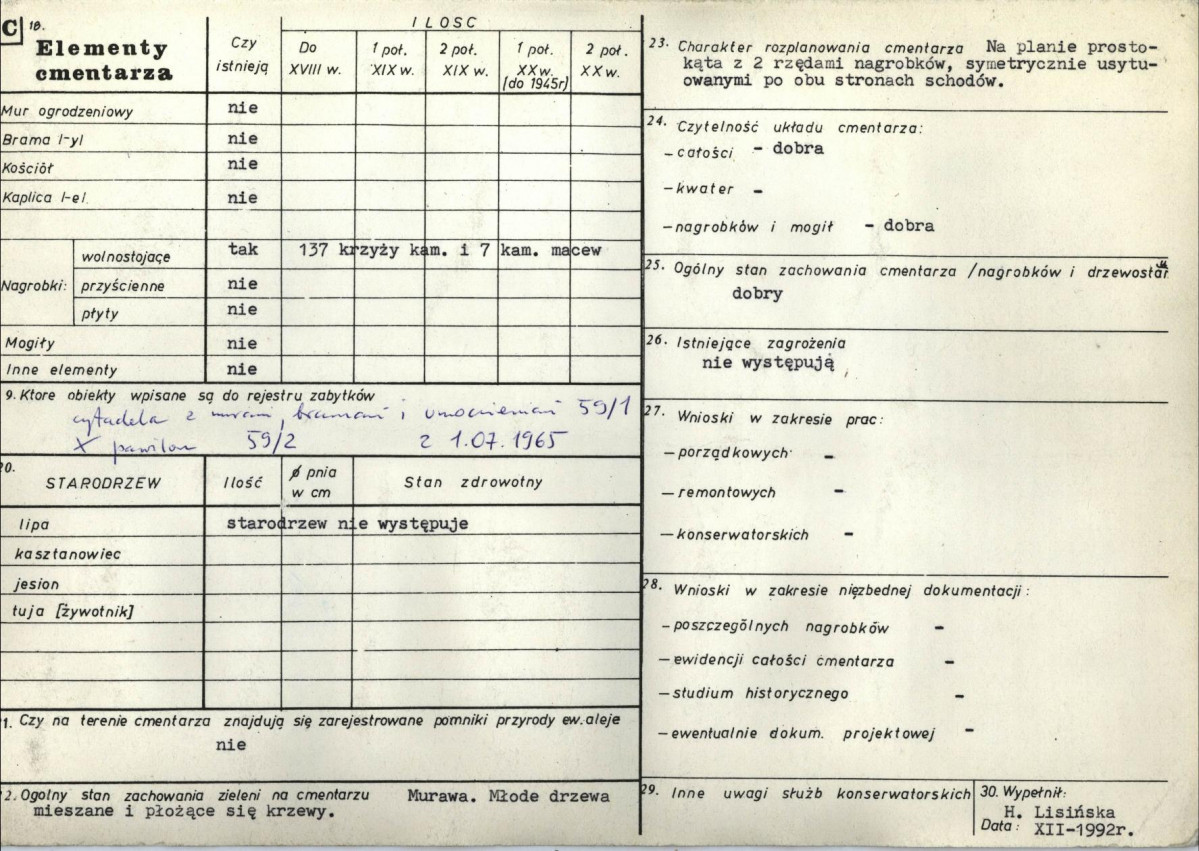 C 18.
Elementy
cmentarza
Czy
istnieją
ILOSC
Do
XVIII w.
1 poł.
XIX w.
2 poł.
XIX w.
1 poł.
XX w.
[do 1945r]
2 poł.
XX w.
Mur ogrodzeniowy nie
Brama /-y/ nie
Kościół nie
Kaplica /-e/ nie
Nagrobki:
wolnostojące tak 137 krzyży kam. i 7 kam. macew
przyścienne nie
płyty nie
Mogiły nie
Inne elementy nie
9. Ktore obiekty wpisane są do rejestru zabytków
cytadela z murami, bramami i umocnieniami 59/1
X pawilon 59/2 z 1.07.1965
20.
STARODRZEW
Ilość
ø pnia
w cm
Stan zdrowotny
lipa starodrzew nie występuje
kasztanowiec
jesion
tuja [żywotnik]
1. Czy na terenie cmentarza znajdują się zarejestrowane pomniki przyrody ew. aleje
nie
2. Ogolny stan zachowania zieleni na cmentarzu Murawa. Młode drzewa
mieszane i płożące się krzewy.
23. Charakter rozplanowania cmentarza Na planie prosto-
kąta z 2 rzędami nagrobków, symetrycznie usytu-
owanymi po obu stronach schodów.
24. Czytelność układu cmentarza:
—całości - dobra
—kwater -
—nagrobków i mogił - dobra
25. Ogólny stan zachowania cmentarza /nagrobków i drzewostan
dobry
26. Istniejące zagrożenia
nie występują
27. Wnioski w zakresie prac:
—porządkowych -
—remontowych -
—konserwatorskich -
28. Wnioski w zakresie niezbędnej dokumentacji:
—poszczególnych nagrobków -
—ewidencji całości cmentarza -
—studium historycznego -
—ewentualnie dokum. projektowej -
29. Inne uwagi służb konserwatorskich
30. Wypełnił:
H. Lisińska
Data: XII-1992r.